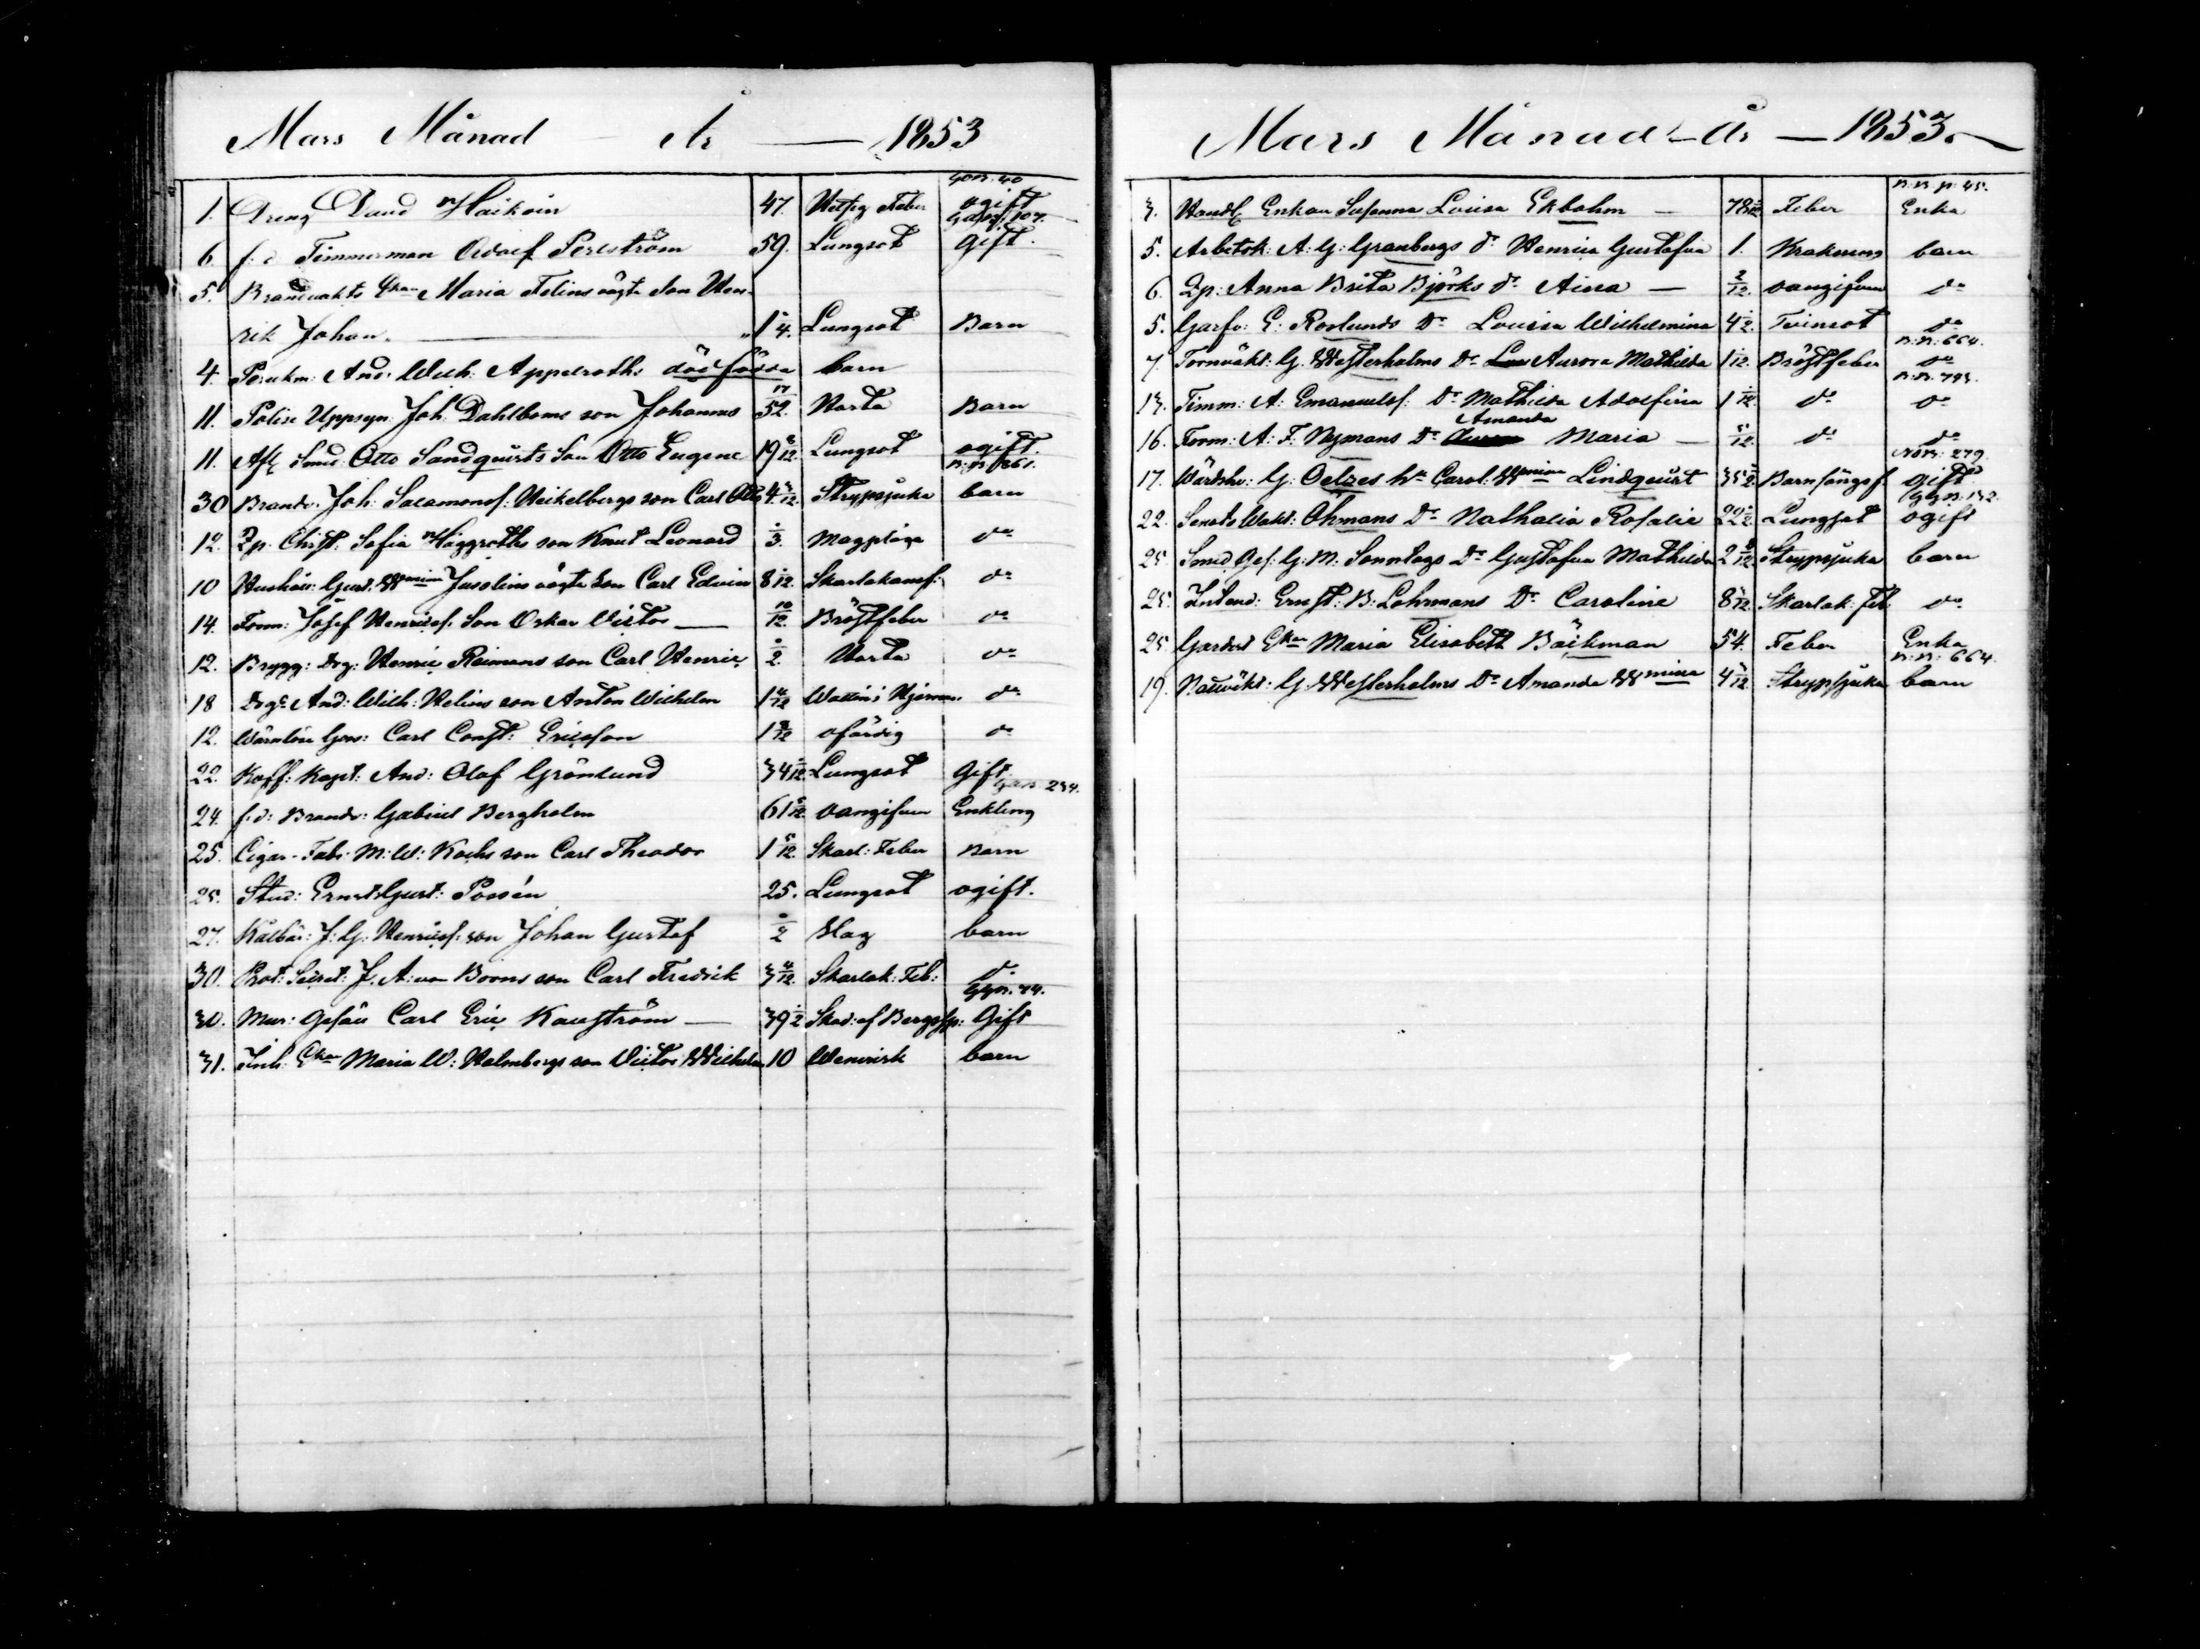 Mars Månad — År — 1853
GoN. 40
1. Dreng David Haikoin 47. Hetsig Feber ogift
6. f. d. Timmerman Adolf Perlström 59. Lungsot Gift.
5. Brandvakts Enkan Maria Felins oägta Son Hen-
rik Johan. — 1 1/4. Lungsot Barn
4. Perukm: And: Wilh. Appelroths dödfödda barn
11. Polise Uppsyn: Joh. Dahlboms son Johannes 17/52. Hosta Barn
11. Afl. Smed Otto Sandquists Son Otto Eugene 19 8/12. Lungsot ogift.
N:N 861.
30 Brandv. Joh: Salamonsf. Heikelbergs son Carl Otto 4 3/12. Strypsjuka barn
12. Qp. Christ. Sofia Häggroths son Knut Leonard 1/3. Magplåga do
10 Hushåll: Gust: Wmina Juselins oägta Son Carl Edvin 8 1/12. Skarlakansf: do
14. Form: Josef Henricsf. Son Oskar Victor — 10/12. Bröstfeber do
12. Brygg: Drg: Henric Reimans son Carl Henric 1/2. Hosta do
18 Drge And: Wilh: Helins son Anton Wilhelm 1 4/12 Watten i Hjernan. do
12. Wärnlöse Goss: Carl Const: Ericsson 1 9/12 ofärdig do
22. Koff: Kapt: And: Olof Grönlund 34 /12 Lungsot Gift
24. f. d: Brandv: Gabriel Bergholm 61 8/12 oangifven Enkling
25. Cigar-Fabr: M: W: Kochs son Carl Theodor 1 5/12. Skarl: Feber Barn
25. Stud: Ernst Gust: Possén 25. Lungsot ogift.
27. Kålbär: J: G: Henricsf: son Johan Gustaf 1/2 Slag barn
30. Prot: Secret: J. A: von Boons son Carl Fredrik 3 4/12. Skarlak: Feb: do
GgN. 74.
30. Mur: Gesäll Carl Eric Kauström — 39 1/2 Skad: af Bergssp: Gift
31. Inh: Enkan Maria W: Holmbergs son Victor Wilhelm 10 Wenerisk barn

Mars Månad — År — 1853.
N:N. p: 45.
3. Handl. Enkan Susanna Lovisa Ekbohm — 78 /12 Feber Enka
5. Arbetsk: A: G: Granbergs Dr Henrica Gustafva 1. Krakning barn
6. Qp: Anna Brita Björks Dr Aina — 2/12. oangifven do
5. Garfv: E: Roslunds Dr Lovisa Wilhelmina 4 1/2. Tvinsot do
N:N: 664.
7. Tornväkt: G. Westerholms Dr Aurora Mathilda 1 /12. Bröstfeber do
N:N. 793.
13. Timm: A: Emanuelsf. Dr Mathilda Adolfina 1 /12 do do
Amanda
16. Form: A: F. Nymans Dr Maria — 5/12. do do
NoN: 279.
17. Wärdshu: G: Oelzes hu Carol: Wmina Lindqvist 35 1/2. Barnsängsf. gift
GgN: 132.
22. Senats Wakt: Öhmans Dr Nathalia Rosalie 22 1/2. Lungsot ogift
25. Smed Ges: G: M: Sonntags Dr Gustafva Mathilda 2 8/12. Strypsjuka barn
25. Intend: Ernst: B: Lohrmans Dr Caroline 8 /12. Skarlak: Feb. do
25. Gardist Enkan Maria Elisabeth Bäckman 54. Feber Enka
N:N: 664.
19. Nattväkt: G: Westerholms Dr Amanda Wmina 4 /12 Strypsjuka barn